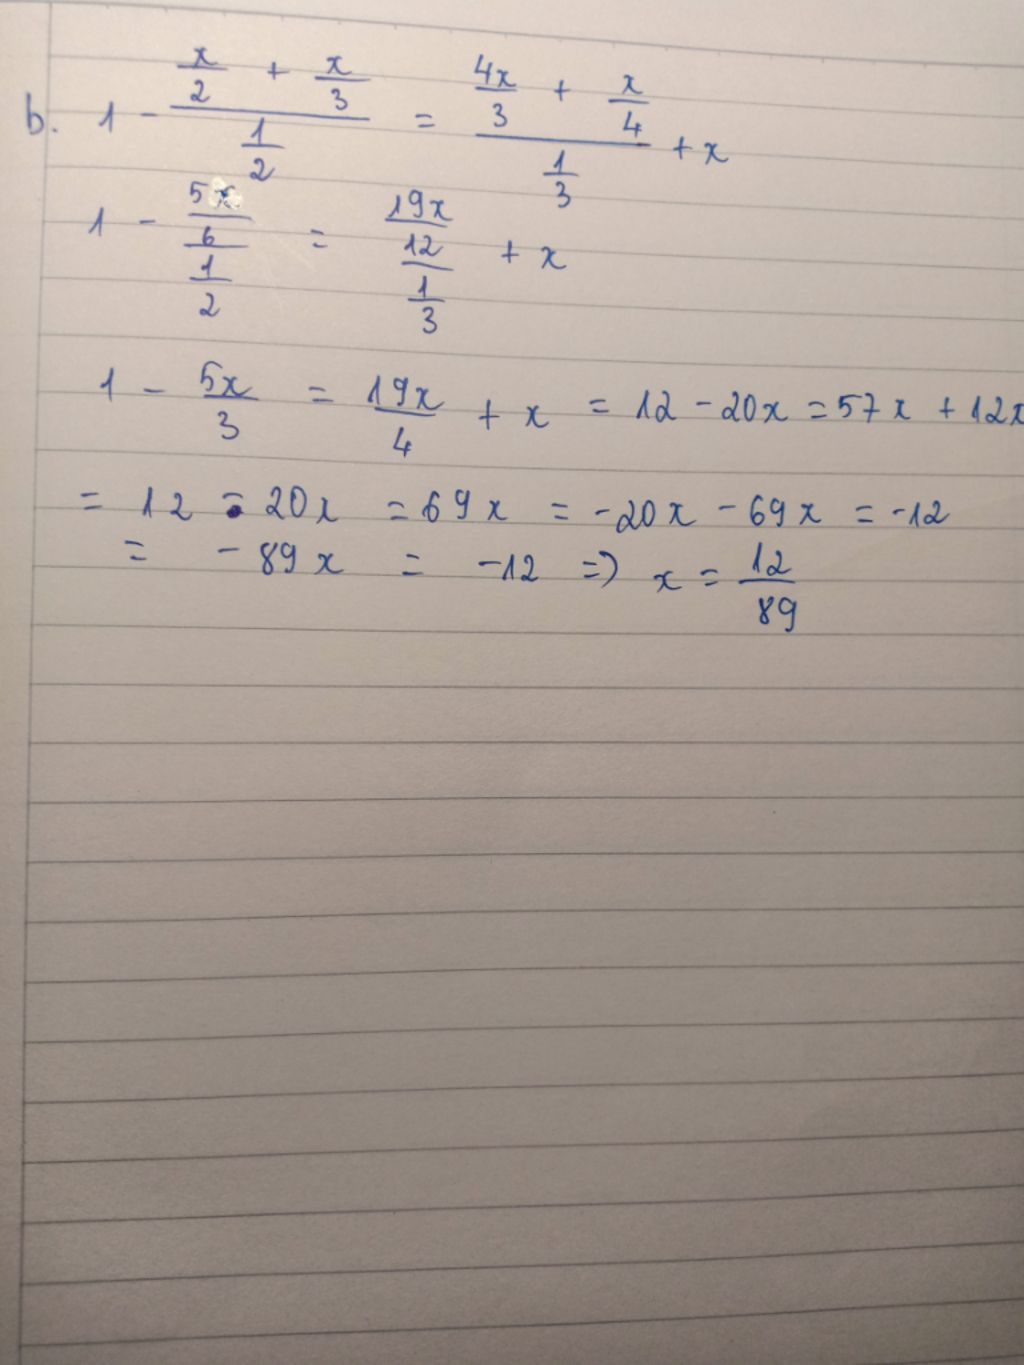 b. 1 - (x/2 + x/3)/(1/2) = (4x/3 + x/4)/(1/3) + x
1 - (5x/6)/(1/2) = (19x/12)/(1/3) + x
1 - 5x/3 = 19x/4 + x = 12 - 20x = 57x + 12x
= 12 - 20x = 69x = -20x - 69x = -12
= -89x = -12 => x = 12/89